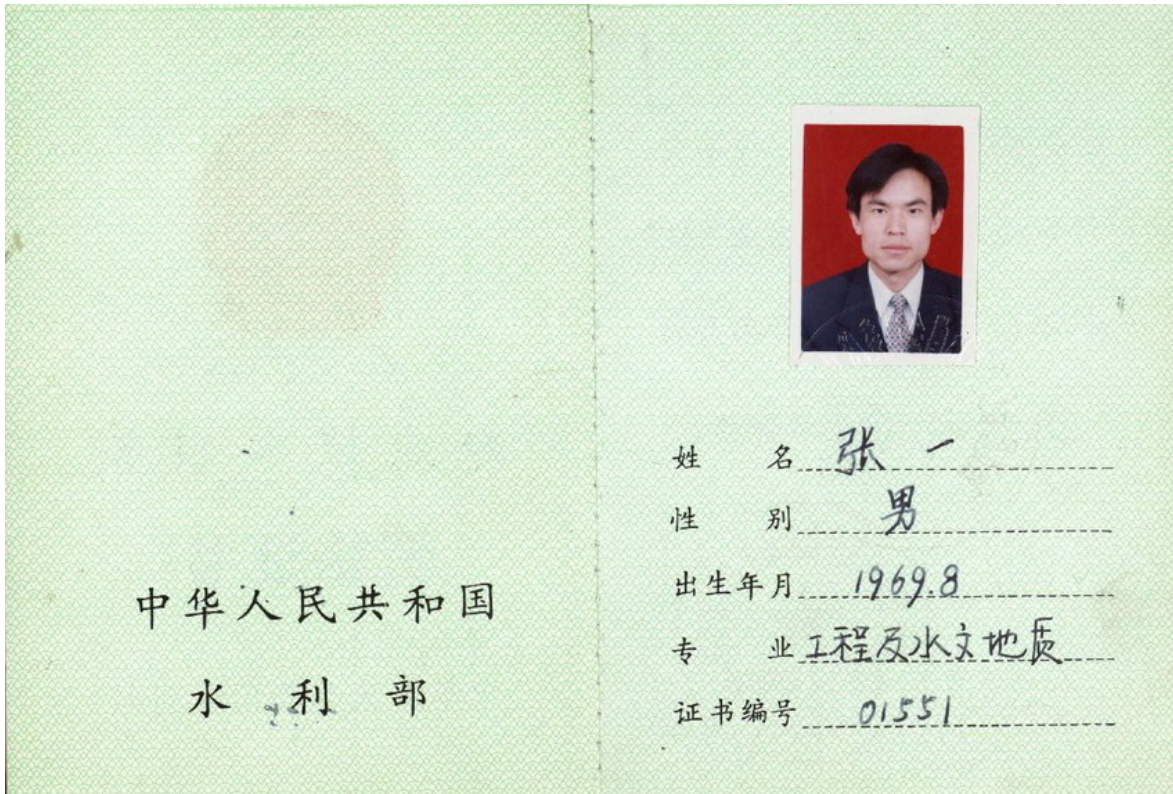 中华人民共和国
水利部
姓名 张一
性别 男
出生年月 1969.8
专业 工程及水文地质
证书编号 01551